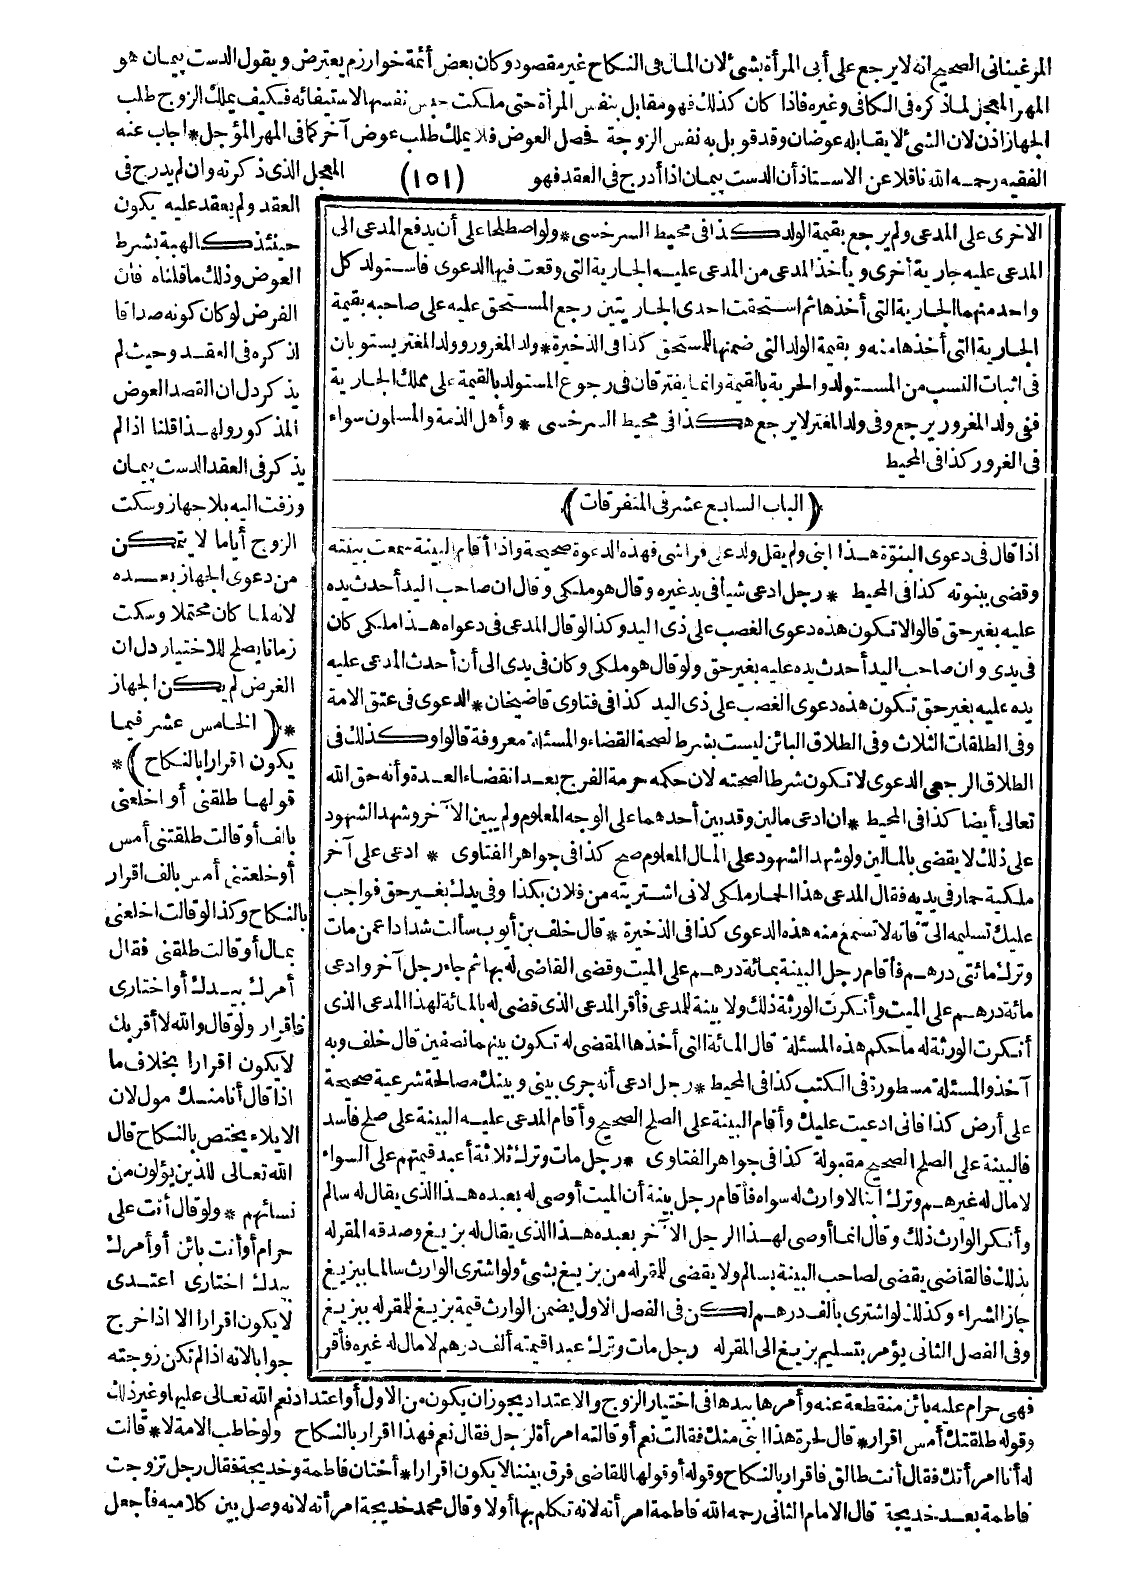 المرغيناني الصحيح انه لا يرجع على أبي المرأة بشئ لان المال في النكاح غير مقصود وكان بعض أئمة خوارزم يعترض ويقول الدست پيمان هو
المهر المعجل لما ذكره في الكافي وغيره فاذا كان كذلك فهو مقابل بنفس المرأة حتى ملكت حبس نفسها لاستيفائه فكيف يملك الزوج طلب
الجهاز اذن لان الشئ لا يقابله عوضان وقد قوبل به نفس الزوجة فحصل العوض فلا يملك طلب عوض آخر كما في المهر المؤجل * اجاب عنه
الفقيه رحمه الله ناقلا عن الاستاذ أن الدست پيمان اذا أدرج في العقد فهو (١٥١) المعجل الذي ذكرته وان لم يدرج في
العقد ولم يعقد عليه يكون
حينئذ كالهبة بشرط
العوض وذلك ما قلناه فان
الغرض لو كان كونه صداقا
اذ كره في العقد وحيث لم
يذكر دل ان القصد العوض
المذكور ولهذا قلنا اذا لم
يذكر في العقد الدست پيمان
وزفت اليه بلا جهاز وسكت
الزوج أياما لا يتمكن
من دعوى الجهاز بعده
لانه لما كان محتملا وسكت
زمانا يصلح للاختيار دل ان
الغرض لم يكن الجهاز
*﴿الخامس عشر فيما
يكون اقرارا بالنكاح﴾*
قولها طلقني أو اخلعني
بالف أو قالت طلقتني أمس
أو خلعتني أمس بالف اقرار
بالنكاح وكذا لو قالت اخلعني
بمال أو قالت طلقني فقال
أمرك بيدك أو اختاري
فاقرار ولو قال والله لا أقربك
لا يكون اقرارا بخلاف ما
اذا قال أنا منك مول لان
الايلاء يختص بالنكاح قال
الله تعالى للذين يؤلون من
نسائهم * ولو قال أنت على
حرام أو أنت بائن أو أمرك
بيدك اختاري اعتدى
لا يكون اقرارا الا اذا خرج
جوابا لانه اذا لم تكن زوجته
الاخرى على المدعى ولم يرجع بقيمة الولد كذا في محيط السرخسي * ولو اصطلحا على أن يدفع المدعى الى
المدعى عليه جارية أخرى ويأخذ المدعى من المدعى عليه الجارية التي وقعت فيها الدعوى فاستولد كل
واحد منهما الجارية التي أخذها ثم استحقت احدى الجاريتين رجع المستحق عليه على صاحبه بقيمة
الجارية التي أخذها منه وبقيمة الولد التي ضمنها للمستحق كذا في الذخيرة * ولد المغرور وولد المغتر يستويان
في اثبات النسب من المستولد والحرية بالقيمة وانما يفترقان في رجوع المستولد بالقيمة على مملك الجارية
ففي ولد المغرور يرجع وفي ولد المغتر لا يرجع هكذا في محيط السرخسي * وأهل الذمة والمسلمون سواء
في الغرور كذا في المحيط
﴿الباب السابع عشر في المتفرقات﴾
اذا قال في دعوى البنوة هذا ابني ولم يقل ولد على فراشي فهذه الدعوة صحيحة واذا أقام البينة سمعت بينته
وقضى ببنوته كذا في المحيط * رجل ادعى شيأ في يد غيره وقال هو ملكي وقال ان صاحب اليد أحدث يده
عليه بغير حق قالوا لا تكون هذه دعوى الغصب على ذي اليد وكذا لو قال المدعى في دعواه هذا ملكي كان
في يدي وان صاحب اليد أحدث يده عليه بغير حق ولو قال هو ملكي وكان في يدي الى أن أحدث المدعى عليه
يده عليه بغير حق تكون هذه دعوى الغصب على ذي اليد كذا في فتاوى قاضيخان * الدعوى في عتق الامة
وفي الطلقات الثلاث وفي الطلاق البائن ليست بشرط لصحة القضاء والمسئلة معروفة قالوا وكذلك في
الطلاق الرجعي الدعوى لا تكون شرطا لصحته لان حكمه حرمة الفرج بعد انقضاء العدة وأنه حق الله
تعالى أيضا كذا في المحيط * ان ادعى مالين وقد بين أحدهما على الوجه المعلوم ولم يبين الآخر وشهد الشهود
على ذلك لا يقضى بالمالين ولو شهد الشهود على المال المعلوم صح كذا في جواهر الفتاوى * ادعى على آخر
ملكية حمار في يديه فقال المدعى هذا الحمار ملكي لاني اشتريته من فلان بكذا وفي يدك بغير حق فواجب
عليك تسليمه الىّ فانه لا تسمع منه هذه الدعوى كذا في الذخيرة * قال خلف بن أيوب سألت شدادا عمن مات
وترك مائتي درهم فأقام رجل البينة بمائة درهم على الميت وقضى القاضي له بها ثم جاء رجل آخر وادعى
مائة درهم على الميت وأنكرت الورثة ذلك ولا بينة للمدعى فأقر المدعى الذي قضى له بالمائة لهذا المدعى الذي
أنكرت الورثة له ما حكم هذه المسئلة قال المائة التي أخذها المقضى له تكون بينهما نصفين قال خلف وبه
آخذ والمسئلة مسطورة في الكتب كذا في المحيط * رجل ادعى أنه جرى بيني وبينك مصالحة شرعية صحيحة
على أرض كذا فاني ادعيت عليك وأقام البينة على الصلح الصحيح وأقام المدعى عليه البينة على صلح فاسد
فالبينة على الصلح الصحيح مقبولة كذا في جواهر الفتاوى * رجل مات وترك ثلاثة أعبد قيمتهم على السواء
لا مال له غيرهم وترك ابنا لا وارث له سواه فأقام رجل بينة أن الميت أوصى له بعبده هذا الذي يقال له سالم
وأنكر الوارث ذلك وقال انما أوصى لهذا الرجل الآخر بعبده هذا الذي يقال له بزيغ وصدقه المقر له
بذلك فالقاضي يقضى لصاحب البينة بسالم ولا يقضى للمقر له من بزيغ بشئ ولو اشترى الوارث سالما ببزيغ
جاز الشراء وكذلك لو اشترى بألف درهم لكن في الفصل الاول يضمن الوارث قيمة بزيغ للمقر له ببزيغ
وفي الفصل الثاني يؤمر بتسليم بزيغ الى المقر له رجل مات وترك عبدا قيمته ألف درهم لا مال له غيره فأقر
فهى حرام عليه بائن منقطعة عنه وأمرها بيدها في اختيار الزوج والاعتداد يجوز ان يكون من الاول أو اعتداد نعم الله تعالى عليها وغير ذلك
وقوله طلقتك أمس اقرار * قال لحرة هذا ابني منك فقالت نعم أو قالته امرأة لرجل فقال نعم فهذا اقرار بالنكاح ولو خاطب الامة لا * قالت
له أنا امرأتك فقال أنت طالق فاقرار بالنكاح وقوله أو قولها للقاضي فرق بيننا لا يكون اقرارا * أختان فاطمة وخديجة فقال رجل تزوجت
فاطمة بعد خديجة قال الامام الثاني رحمه الله فاطمة امرأته لانه تكلم بها أولا وقال محمد خديجة امرأته لانه وصل بين كلاميه فأجعل